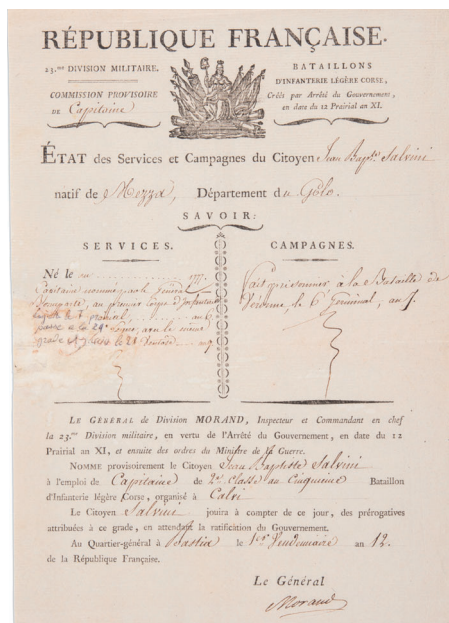 RÉPUBLIQUE FRANÇAISE.
23.me DIVISION MILITAIRE.
COMMISSION PROVISOIRE
DE Capitaine
BATAILLONS
D'INFANTERIE LÉGÈRE CORSE,
Créés par Arrêté du Gouvernement,
en date du 12 Prairial an XI.
ÉTAT des Services et Campagnes du Citoyen Jean Bapte. Salvini
natif de Mezza, Département du Golo.
SAVOIR:
SERVICES.
Né le
Capitaine nommé par le Général
Bonaparte, au premier Corps d'Infanterie
Légère le 7 an 6.
grade le 28 Ventose an 9
CAMPAGNES.
Fait prisonnier, à la Bataille de
Verone, le 6 Germinal, an 7.
LE GÉNÉRAL de Division MORAND, Inspecteur et Commandant en chef
la 23.me Division militaire, en vertu de l'Arrêté du Gouvernement, en date du 12
Prairial an XI, et ensuite des ordres du Ministre de la Guerre.
NOMME provisoirement le Citoyen Jean Baptiste Salvini
à l'emploi de Capitaine de 2e. Classe au Cinquieme Bataillon
d'Infanterie légère Corse, organisé à Calvi
Le Citoyen Salvini jouira à compter de ce jour, des prérogatives
attribuées à ce grade, en attendant la ratification du Gouvernement.
Au Quartier-général à Bastia le 1er Vendemiaire an 12.
de la République Française.
Le Général
Morand